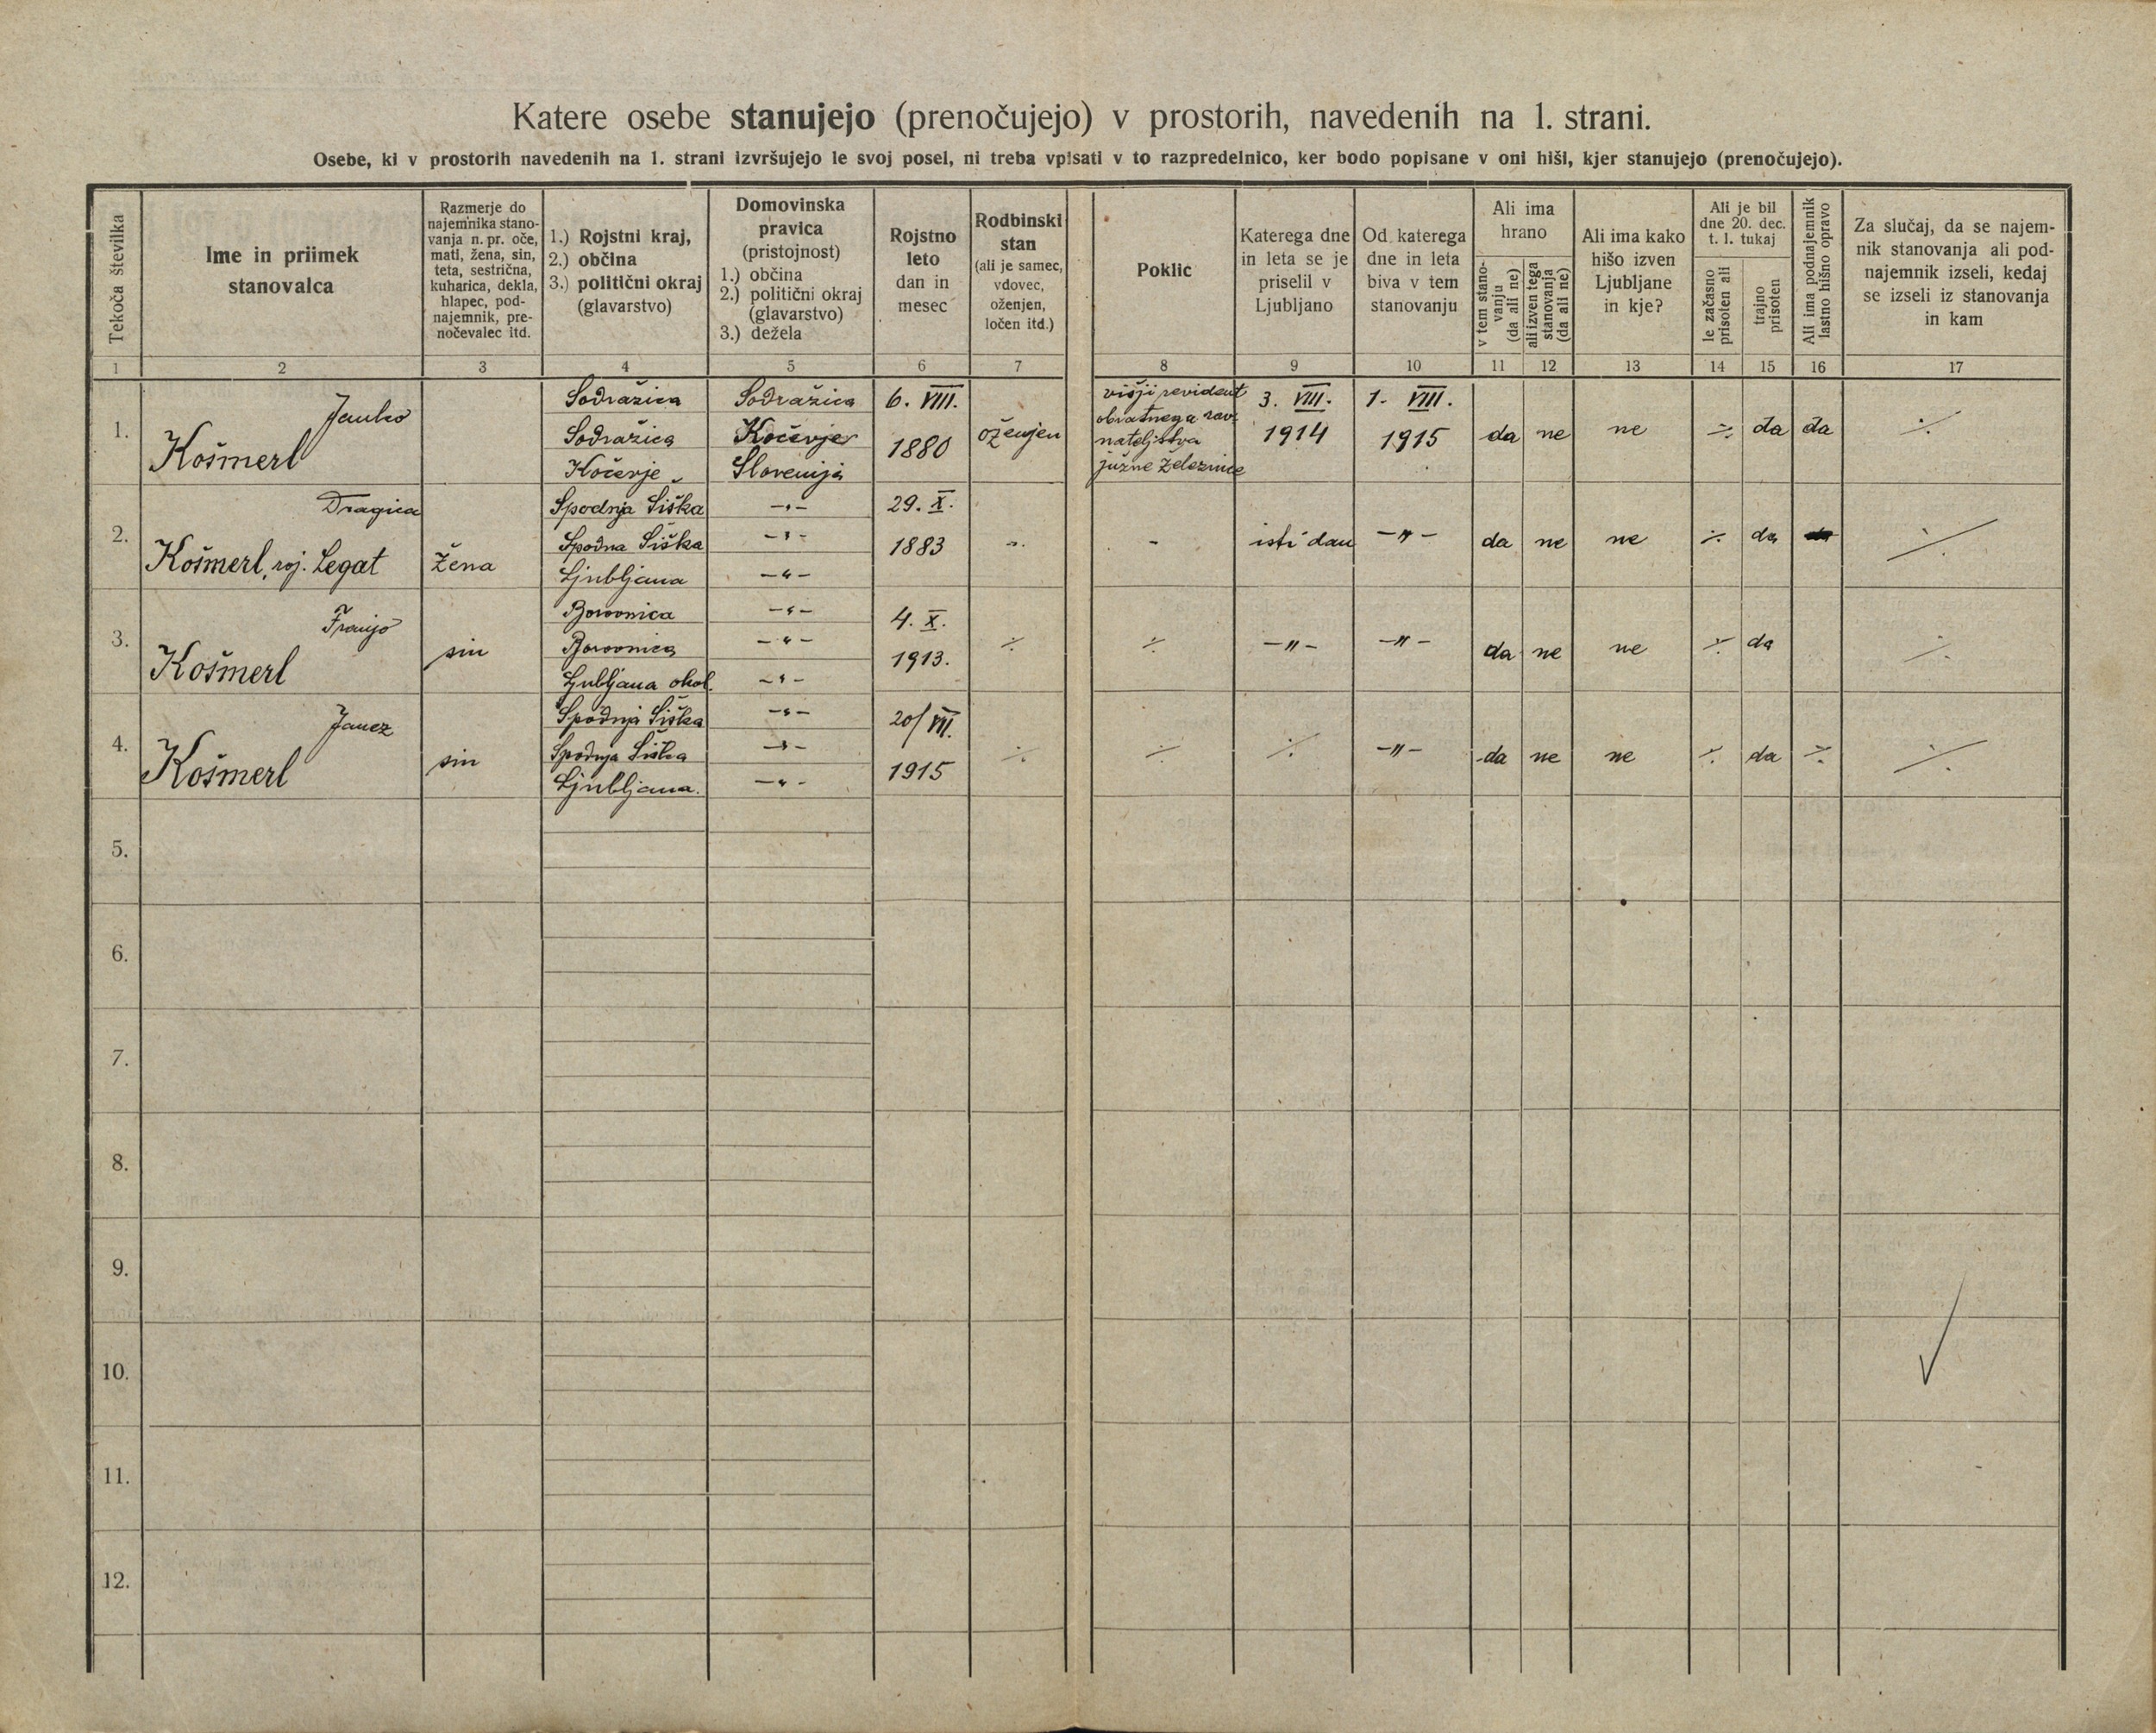 Katere osebe stanujejo (prenočujejo) v prostorih, navedenih na 1. strani.
Osebe, ki v prostorih navedenih na 1. strani izvršujejo le svoj posel, ni treba vpisati v to razpredelnico, ker bodo popisane v oni hiši, kjer stanujejo (prenočujejo).
Tekoča številka
Ime in priimek
stanovalca
Razmerje do
najemnika stano-
vanja n. pr. oče,
mati, žena, sin,
teta, sestrična,
kuharica, dekla,
hlapec, pod-
najemnik, pre-
nočevalec itd.
1.) Rojstni kraj,
2.) občina
3.) politični okraj
(glavarstvo)
Domovinska
pravica
(pristojnost)
1.) občina
2.) politični okraj
(glavarstvo)
3.) dežela
Rojstno
leto
dan in
mesec
Rodbinski
stan
(ali je samec,
vdovec,
oženjen,
ločen itd.)
Poklic
Katerega dne
in leta se je
priselil v
Ljubljano
Od katerega
dne in leta
biva v tem
stanovanju
Ali ima
hrano
v tem stano-
vanju
(da ali ne)
ali izven tega
stanovanja
(da ali ne)
Ali ima kako
hišo izven
Ljubljane
in kje?
Ali je bil
dne 20. dec.
t. l. tukaj
le začasno
prisoten ali
trajno
prisoten
Ali ima podnajemnik
lastno hišno opravo
Za slučaj, da se najem-
nik stanovanja ali pod-
najemnik izseli, kedaj
se izseli iz stanovanja
in kam
1 2 3 4 5 6 7 8 9 10 11 12 13 14 15 16 17
1.
Janko
Košmerl
Sodražica
Sodražica
Kočevje
Sodražica
Kočevje
Slovenija
6. VIII.
1880
oženjen
višji revident
obratnega rav-
nateljstva
južne železnice
3. VIII.
1914
1. VIII.
1915
da ne ne ÷ da da ÷
2.
Dragica
Košmerl, roj. Legat
žena
Spodnja Šiška
Spodna Šiška
Ljubljana
-„-
-„-
-„-
29. X.
1883
-„-
-
isti dan
-„-
da ne ne ÷ da ÷
3.
Franjo
Košmerl
sin
Borovnica
Borovnica
Ljubljana okol.
-„-
-„-
-„-
4. X.
1913.
÷ ÷ -„- -„- da ne ne ÷ da ÷
4.
Janez
Košmerl
sin
Spodnja Šiška
Spodnja Šiška
Ljubljana.
-„-
-„-
-„-
20/VII.
1915
÷ ÷ ÷ -„- da ne ne ÷ da ÷ ÷
5.
6.
7.
8.
9.
10.
11.
12.